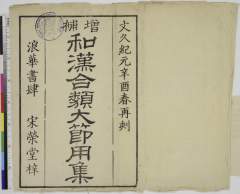 文久紀元辛酉春再刻
増補
和漢合類大節用集
浪華書肆 宋榮堂梓